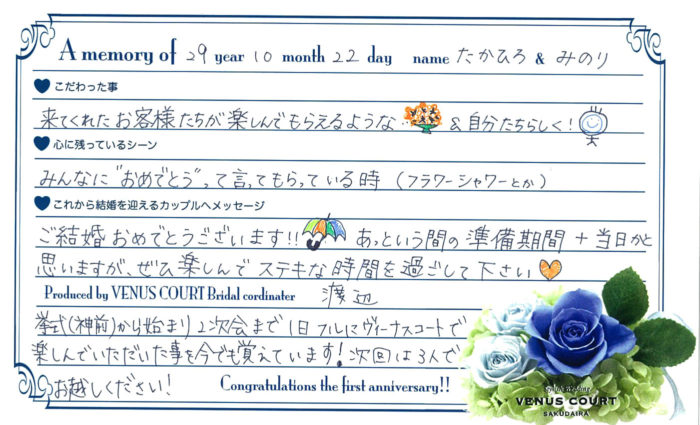 A memory of 29 year 10 month 22 day name たかひろ & みのり
こだわった事
来てくれたお客様たちが楽しんでもらえるような… & 自分たちらしく!
心に残っているシーン
みんなに"おめでとう"って言ってもらっている時 (フラワーシャワーとか)
これから結婚を迎えるカップルへメッセージ
ご結婚おめでとうございます!! あっという間の準備期間+当日かと
思いますが、ぜひ楽しんでステキな時間を過ごして下さい
Produced by VENUS COURT Bridal cordinater 渡辺
挙式(神前)から始まり2次会まで1日フルにヴィーナスコートで
楽しんでいただいた事を今でも覚えています!次回は3人で
お越しください!
Congratulations the first anniversary!!
VENUS COURT
SAKUDAIRA